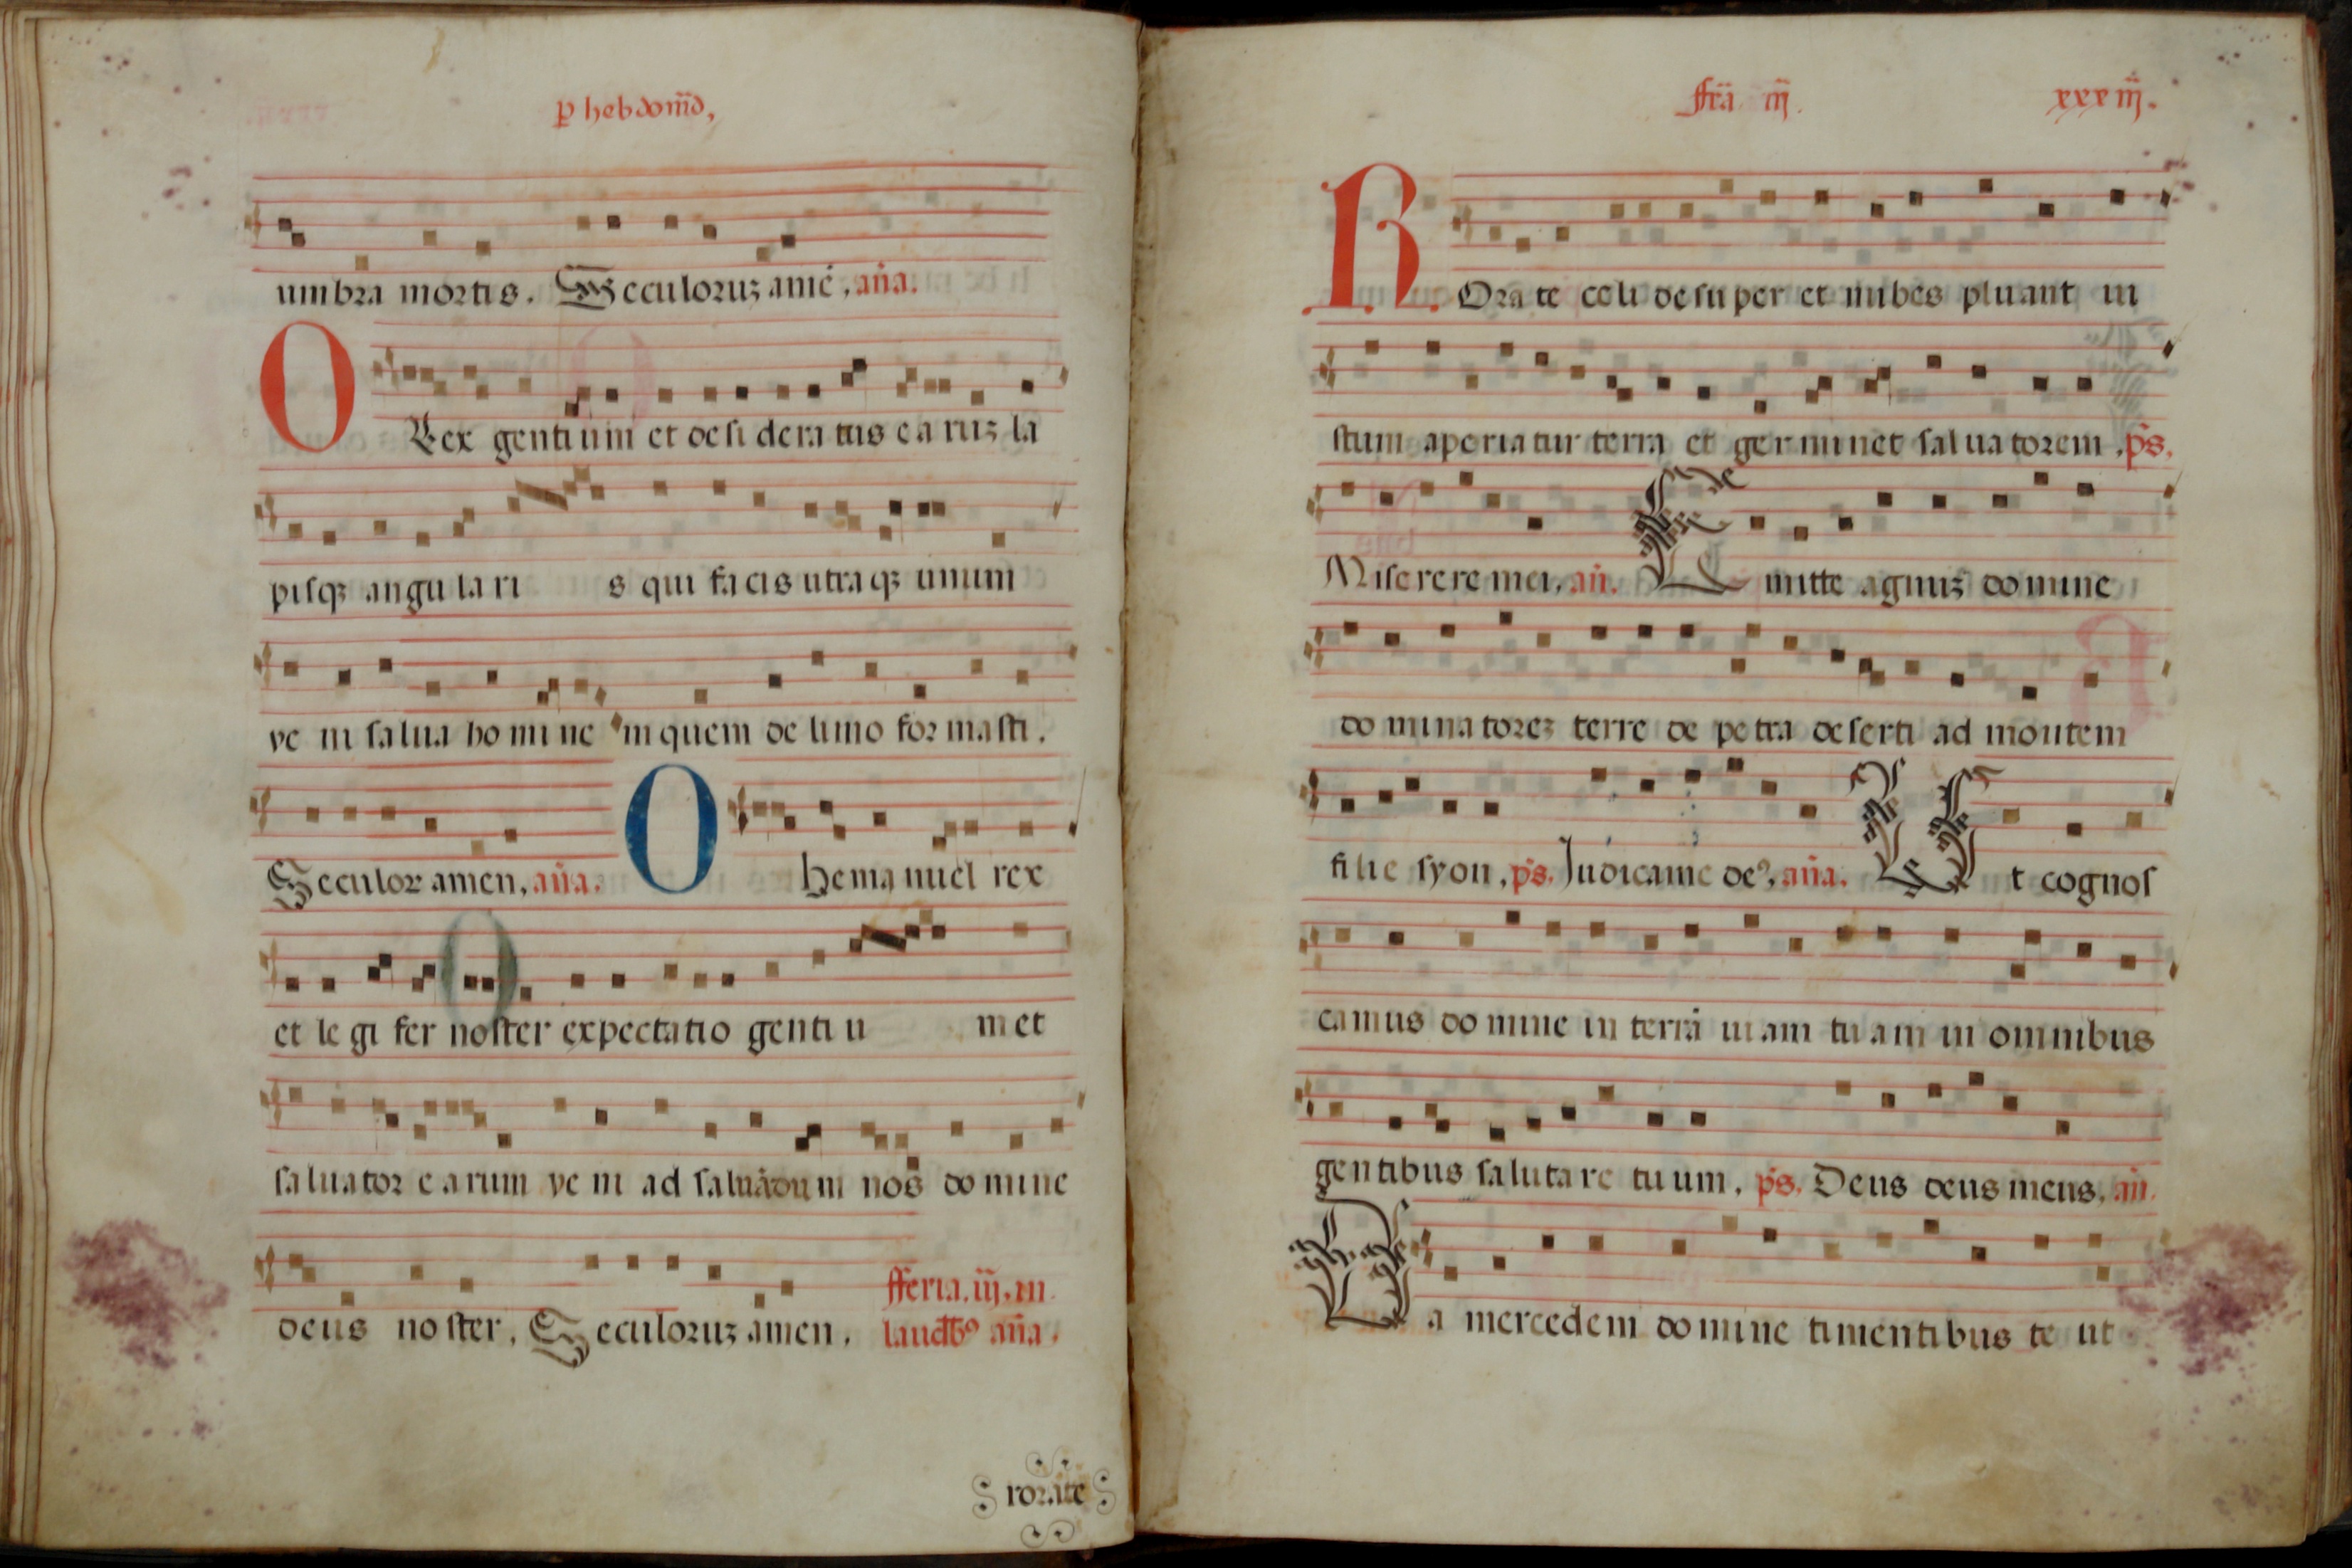 p hebdom̃d,
umbra mortis. Seculoruꝫ amē, aña.
O Rex gentium et desideratus earuꝫ la
pisqꝫ angularis qui facis utraqꝫ unum
veni salua homine in quem de limo formasti.
Seculor amen, aña. O hemanuel rex
et legifer noster expectatio gentium et
saluator earum veni ad saluādum nos domine
deus noster, Seculoruꝫ amen. fferia. iij. in
laudibꝰ aña.
rorate
ffr̃a iij. xxxiij.
ROrate celi desuper et nubes pluant iu
stum aperiatur terra et germinet saluatorem. ps.
Miserere mei. an̄. Emitte agnuꝫ domine
dominatoreꝫ terre de petra deserti ad montem
filie syon, ps. Judicame deꝰ, aña. Ut cognos
camus domine in terrā uiam tuam in omnibus
gentibus salutare tuum, ps. Deus deus meus, an̄.
Da mercedem domine timentibus te ut